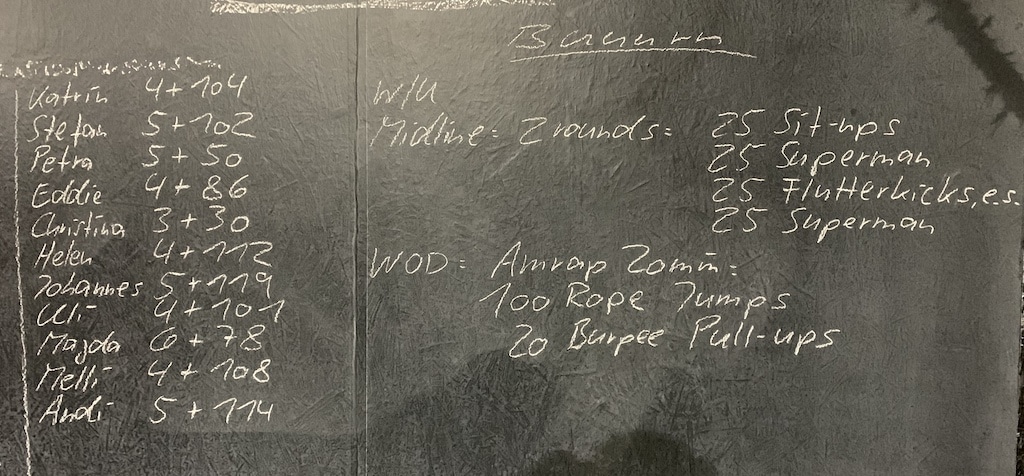 Barbara
Katrin 4+104
Stefan 5+102
Petra 5+50
Eddie 4+86
Christina 3+30
Helen 4+112
Johannes 5+119
Uli 4+101
Magda 6+78
Melli 4+108
Andi 5+114
W/U
Midline: 2 rounds: 25 Sit-ups
25 Superman
25 Flutterkicks, e.s.
25 Superman
WOD: Amrap 20min:
100 Rope Jumps
20 Burpee Pull-ups